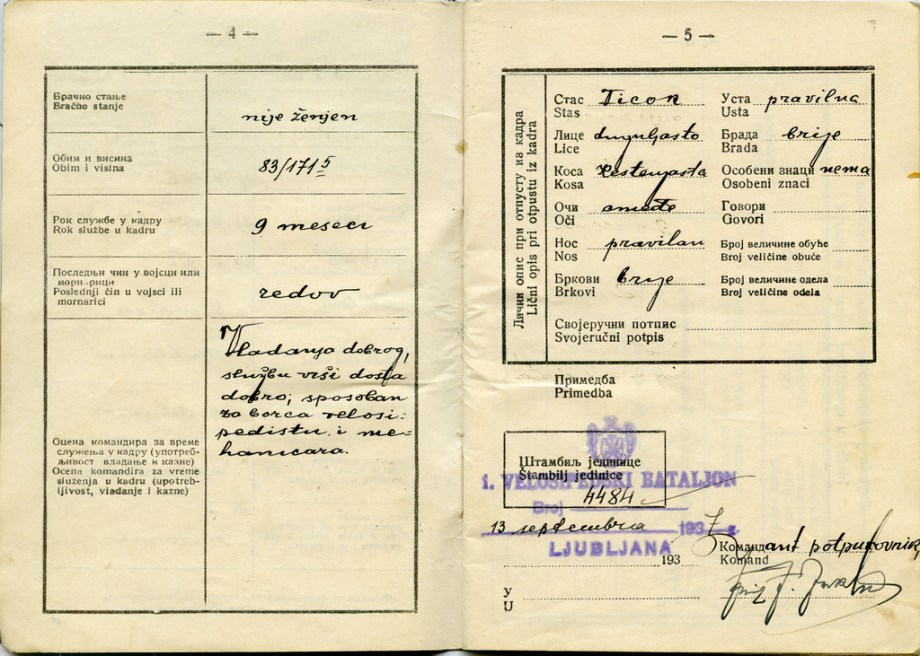 — 4 —
Брачно стање
Bračno stanje
nije ženjen
Обим и висина
Obim i visina
83/171⁵
Рок службе у кадру
Rok službe u kadru
9 meseci
Последњи чин у војсци или
морнарици
Poslednji čin u vojsci ili
mornarici
redov
Оцена командира за време
служења у кадру (употреб-
љивост владање и казне)
Ocena komandira za vreme
služenja u kadru (upotreb-
ljivost, vladanje i kazne)
Vladanja dobrog,
službu vrši dosta
dobro; sposoban
za borca velosi-
pedistu i me-
haničara.
— 5 —
Лични опис при отпусту из кадра
Lični opis pri otpustu iz kadra
Стас
Stas
Лице duguljasto
Lice
Коса kestenjasta
Kosa
Очи smeđe
Oči
Нос pravilan
Nos
Бркови brije
Brkovi
Уста pravilna
Usta
Брада brije
Brada
Особени знаци nema
Osobeni znaci
Говори
Govori
Број величине обуће
Broj veličine obuće
Број величине одела
Broj veličine odela
Својеручни потпис
Svojeručni potpis
Примедба
Primedba
Штамбиљ јединице
Štambilj jedinice
1. VELOSIPEDSKI BATALJON
Broj 4484
13 septembra 1937 g.
LJUBLJANA
193
У
U
Командant potpukovnik,
Komand